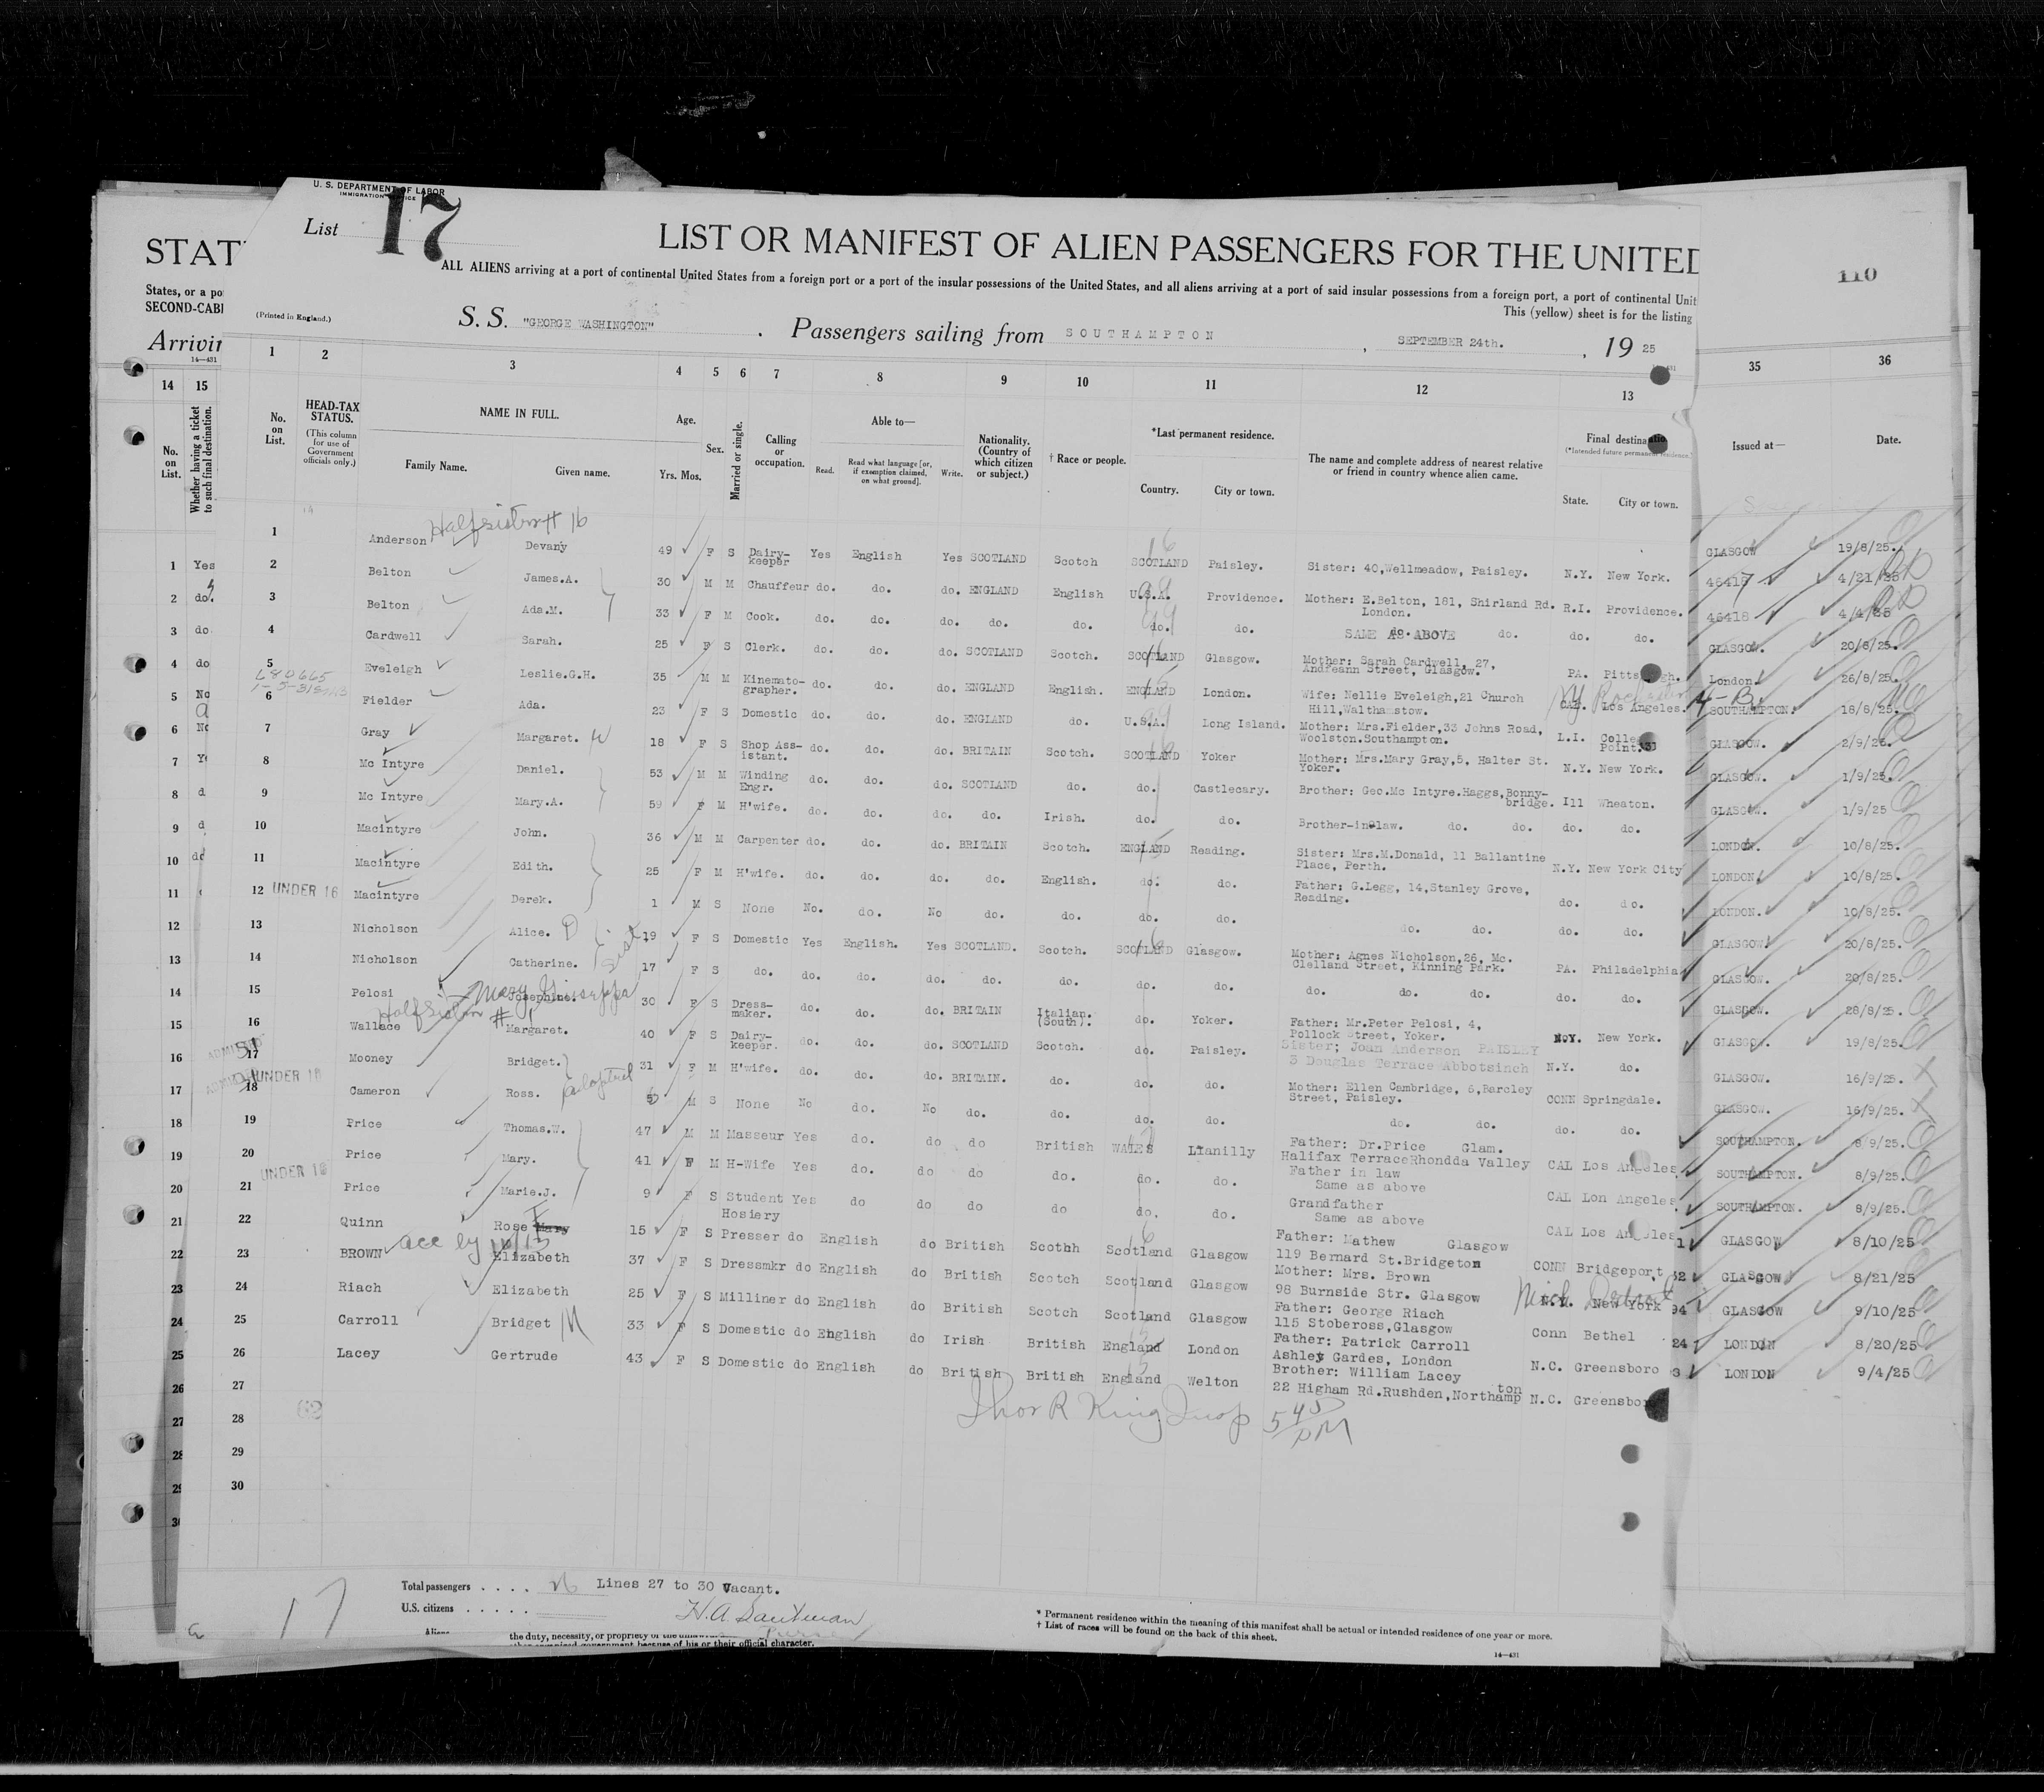 U. S. DEPARTMENT OF LABOR
IMMIGRATION SERVICE
List 17
STAT
LIST OR MANIFEST OF ALIEN PASSENGERS FOR THE UNITED
110
ALL ALIENS arriving at a port of continental United States from a foreign port or a port of the insular possessions of the United States, and all aliens arriving at a port of said insular possessions from a foreign port, a port of continental Unit
States, or a po
SECOND-CABI
This (yellow) sheet is for the listing
(Printed in England.)
S. S. "GEORGE WASHINGTON" . Passengers sailing from SOUTHAMPTON , SEPTEMBER 24th. , 19 25
Arrivin
14—431
14 15 1 2 3 4 5 6 7 8 9 10 11 12 13 35 36
No. on List.
Whether having a ticket to such final destination.
No. on List.
HEAD-TAX STATUS.
(This column for use of Government officials only.)
NAME IN FULL.
Family Name. Given name.
Age.
Yrs. Mos.
Sex.
Married or single.
Calling or occupation.
Able to—
Read. Read what language [or, if exemption claimed, on what ground]. Write.
Nationality. (Country of which citizen or subject.)
† Race or people.
*Last permanent residence.
Country. City or town.
The name and complete address of nearest relative or friend in country whence alien came.
Final destinatio
(*Intended future permanent residence.)
State. City or town.
Issued at—
Date.
Half sister # 16
1 Anderson Devany 49 F S Dairy-keeper Yes English Yes SCOTLAND Scotch SCOTLAND Paisley. Sister: 40,Wellmeadow, Paisley. N.Y. New York. GLASGOW 19/8/25.
2 Belton James.A. 30 M M Chauffeur do. do. do. ENGLAND English U.S.A. Providence. Mother: E.Belton, 181, Shirland Rd. London. R.I. Providence. 46417 4/21/25
3 Belton Ada.M. 33 F M Cook. do. do. do. do. do. do. do. SAME AS ABOVE do. do. do. 46418 4/4/25
4 Cardwell Sarah. 25 F S Clerk. do. do. do. SCOTLAND Scotch. SCOTLAND Glasgow. Mother: Sarah Cardwell, 27, Andreann Street, Glasgow. PA. Pittsburgh. GLASGOW. 20/8/25.
5 Eveleigh Leslie.G.H. 35 M M Kinemato-grapher. do. do. do. ENGLAND English. ENGLAND London. Wife: Nellie Eveleigh,21 Church Hill,Walthamstow. CAL. Los Angeles. London. 26/8/25.
6 Fielder Ada. 23 F S Domestic do. do. do. ENGLAND do. U.S.A. Long Island. Mother: Mrs.Fielder,33 Johns Road, Woolston.Southampton. L.I. College Point. SOUTHAMPTON. 18/8/25.
7 Gray Margaret. 18 F S Shop Ass-istant. do. do. do. BRITAIN Scotch. SCOTLAND Yoker Mother: Mrs.Mary Gray,5, Halter St. Yoker. N.Y. New York. GLASGOW. 2/9/25.
8 Mc Intyre Daniel. 53 M M Winding Engr. do. do. do. SCOTLAND do. do. Castlecary. Brother: Geo.Mc Intyre.Haggs,Bonny-bridge. Ill Wheaton. GLASGOW. 1/9/25.
9 Mc Intyre Mary.A. 59 F M H'wife. do. do. do. do. Irish. do. do. Brother-in-law. do. do. do. do. GLASGOW. 1/9/25
10 Macintyre John. 36 M M Carpenter do. do. do. BRITAIN Scotch. ENGLAND Reading. Sister: Mrs.M.Donald, 11 Ballantine Place, Perth. N.Y. New York City LONDON. 10/8/25.
11 Macintyre Edith. 25 F M H'wife. do. do. do. do. English. do. do. Father: G.Legg, 14,Stanley Grove, Reading. do. do. LONDON. 10/8/25.
12 UNDER 16 Macintyre Derek. 1 M S None No. do. No do. do. do. do. do. do. do. do. LONDON. 10/8/25.
13 Nicholson Alice. D 19 F S Domestic Yes English. Yes SCOTLAND. Scotch. SCOTLAND Glasgow. Mother: Agnes Nicholson,26, Mc. Clelland Street, Kinning Park. PA. Philadelphia GLASGOW. 20/8/25.
14 Nicholson Catherine. 17 F S do. do. do. do. do. do. do. do. do. do. do. do. do. GLASGOW. 20/8/25.
15 Pelosi Josephine. Mary Giuseppa 30 F S Dress-maker. do. do. do. BRITAIN Italian. (South). do. Yoker. Father: Mr.Peter Pelosi, 4, Pollock Street, Yoker. N.Y. New York. GLASGOW. 28/8/25.
Half sister # 1
16 Wallace Margaret. 40 F S Dairy-keeper. do. do. do. SCOTLAND Scotch. do. Paisley. Sister; Joan Anderson PAISLEY 3 Douglas Terrace Abbotsinch N.Y. do. GLASGOW. 19/8/25.
ADMITTED 17 Mooney Bridget. 31 F M H'wife. do. do. do. BRITAIN. do. do. do. Mother: Ellen Cambridge, 6,Barcley Street, Paisley. CONN Springdale. GLASGOW. 16/9/25.
ADMITTED 18 UNDER 16 Cameron Ross. adopted M S None No do. No do. do. do. do. do. do. do. do. GLASGOW. 16/9/25.
19 Price Thomas.W. 47 M M Masseur Yes do. do do British WALES Llanilly Father: Dr.Price Glam. Halifax TerraceRhondda Valley CAL Los Angeles SOUTHAMPTON. 8/9/25.
20 Price Mary. 41 F M H-Wife Yes do. do do do. do. do. Father in law Same as above CAL Lon Angeles SOUTHAMPTON. 8/9/25.
UNDER 16
21 Price Marie.J. 9 F S Student Yes do do do do do. do. Grandfather Same as above CAL Los Angeles SOUTHAMPTON. 8/9/25.
22 Quinn Rose Mary 15 F S Hosiery Presser do English do British Scothh Scotland Glasgow Father: Mathew Glasgow 119 Bernard St.Bridgeton CONN Bridgeport GLASGOW 8/10/25
23 BROWN Elizabeth 37 F S Dressmkr do English do British Scotch Scotland Glasgow Mother: Mrs. Brown 98 Burnside Str. Glasgow N.Y. New York Mich Detroit GLASGOW 8/21/25
24 Riach Elizabeth 25 F S Milliner do English do British Scotch Scotland Glasgow Father: George Riach 115 Stobeross,Glasgow Conn Bethel GLASGOW 9/10/25
25 Carroll Bridget M 33 F S Domestic do English do Irish British England London Father: Patrick Carroll Ashley Gardes, London N.C. Greensboro LONDON 8/20/25
26 Lacey Gertrude 43 F S Domestic do English do British British England Welton Brother: William Lacey 22 Higham Rd.Rushden,Northampton N.C. Greensboro LONDON 9/4/25
27
28
29
30
Total passengers . . . . 26 Lines 27 to 30 Vacant.
U.S. citizens . . . . .
H.A. Sautman
Aliens
the duty, necessity, or propriety of the
other organized government because of his or their official character.
* Permanent residence within the meaning of this manifest shall be actual or intended residence of one year or more.
† List of races will be found on the back of this sheet.
14—431
17